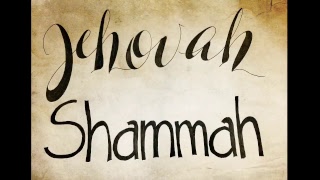 Jehovah
Shammah